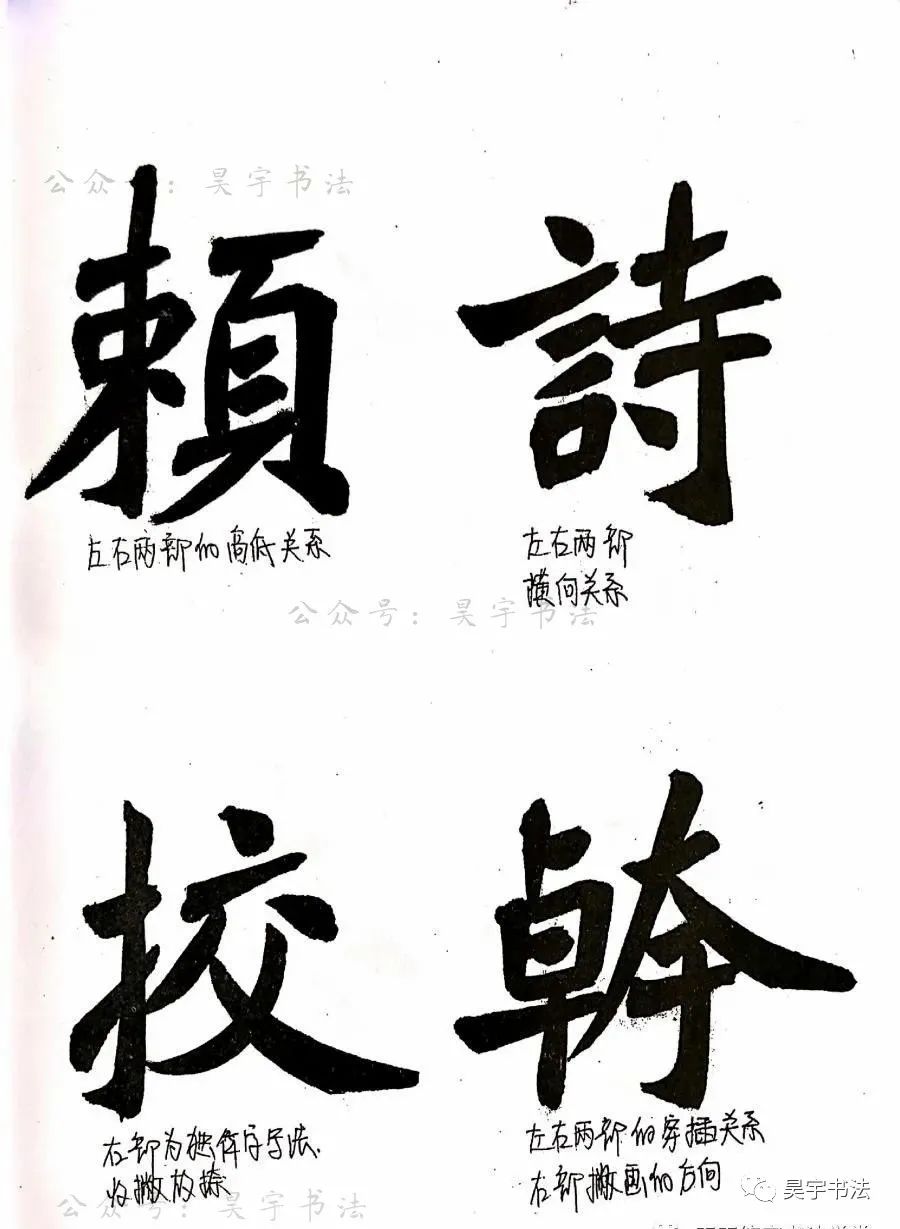 公众号：昊宇书法
頼 詩
左右两部的高低关系
左右两部
横向关系
公众号：昊宇书法
挍 幹
右部为独体字写法.
收撇放捺
左右两部的穿插关系
右部撇画的方向
公众号：昊宇书法
昊宇书法